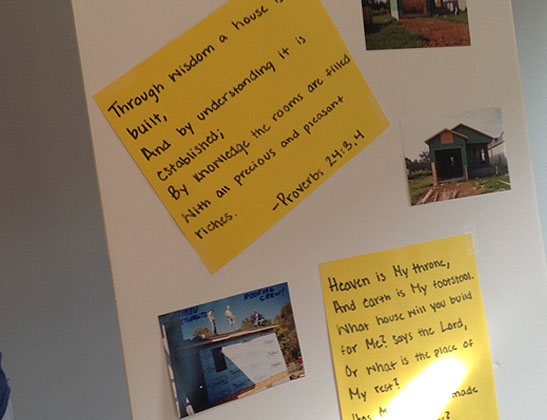 Through Wisdom a house is
built,
And by understanding it is
established;
By knowledge the rooms are filled
With all precious and pleasant
riches.
-Proverbs 24:3,4
ROOFING
CREW!
STUDENTS
Heaven is My throne,
And earth is My footstool.
What house will you build
for Me? says the Lord,
Or what is the place of
My rest?
made